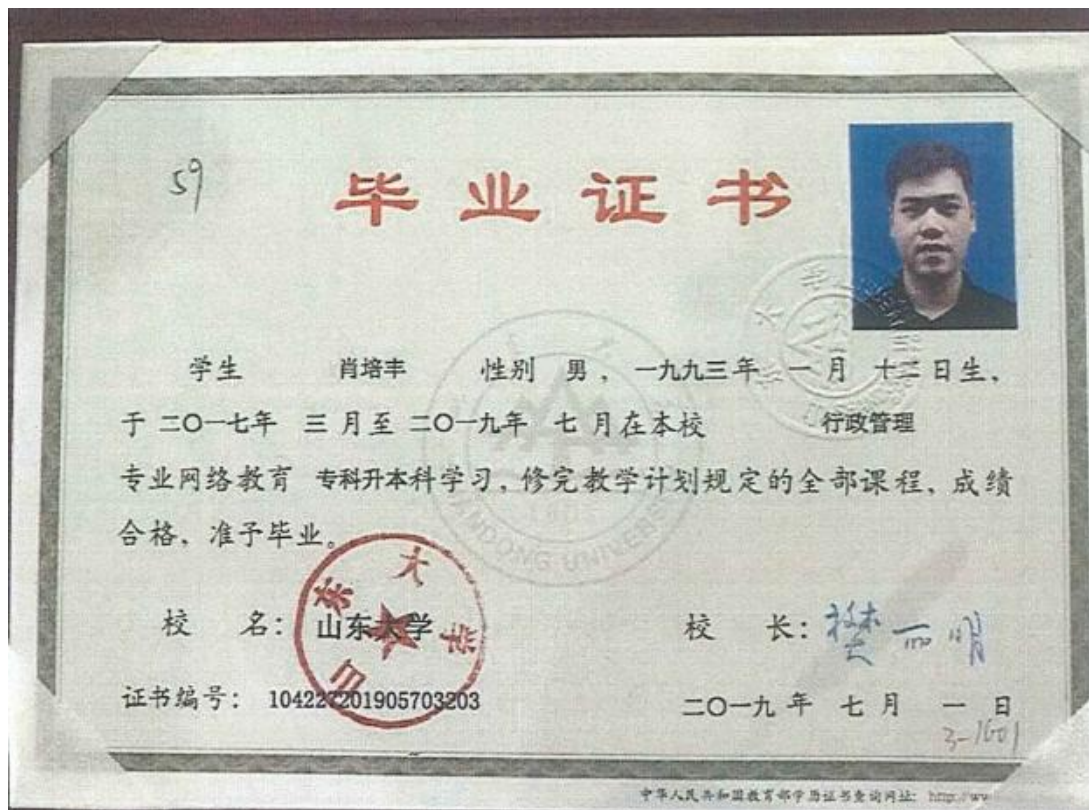 59
毕业证书
学生 肖培丰 性别 男，一九九三年 一 月 十二 日生，
于 二〇一七年 三 月至 二〇一九年 七 月在本校 行政管理
专业网络教育 专科升本科学习，修完教学计划规定的全部课程，成绩
合格，准予毕业。
SHANDONG UNIVERSITY
山东大学
校 名： 山东大学 校 长： 樊丽明
证书编号： 104227201905703203 二〇一九 年 七 月 一 日
3-1601
中华人民共和国教育部学历证书查询网址： http://ww